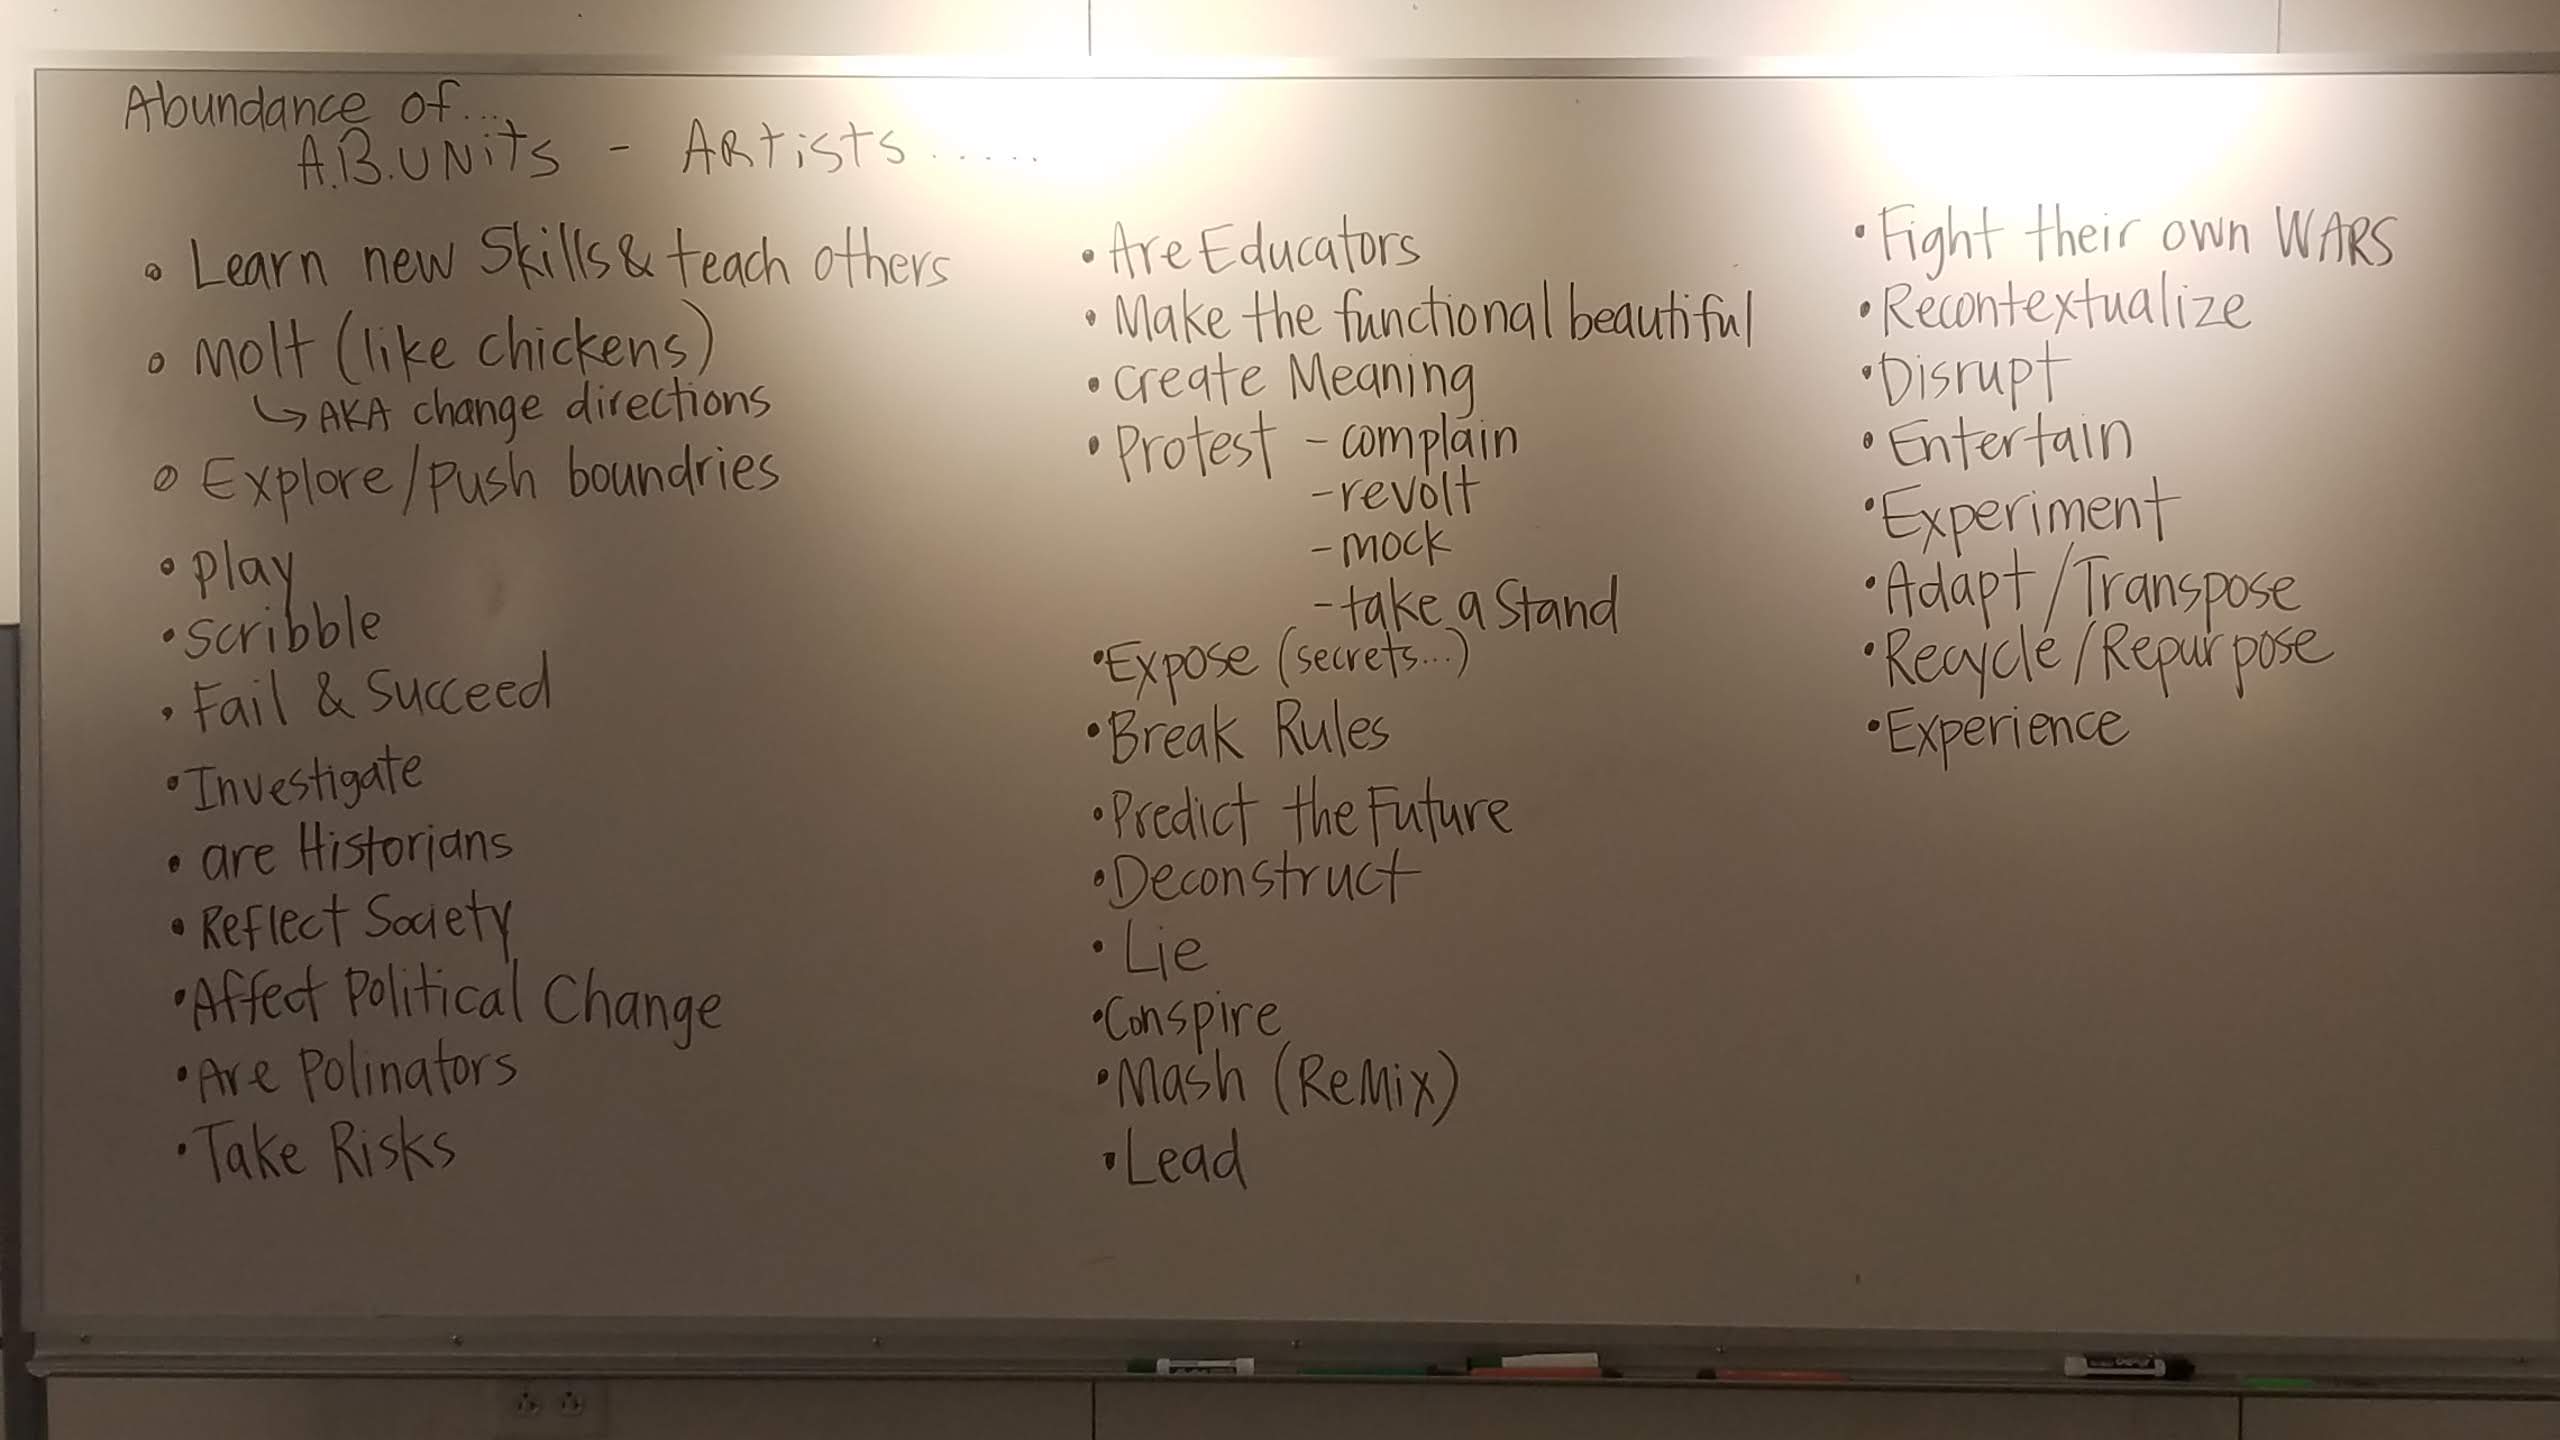 Abundance of...
A.B.UNits - Artists.....
• Learn new Skills & teach others
• Molt (like chickens)
↳ AKA change directions
• Explore/push boundries
• play
• scribble
• Fail & Succeed
• Investigate
• are Historians
• Reflect Society
• Affect Political Change
• Are Polinators
• Take Risks
• Are Educators
• Make the functional beautiful
• create Meaning
• Protest - complain
- revolt
- mock
- take a Stand
• Expose (secrets...)
• Break Rules
• Predict the Future
• Deconstruct
• Lie
• Conspire
• Mash (ReMix)
• Lead
• Fight their own WARS
• Recontextualize
• Disrupt
• Entertain
• Experiment
• Adapt/Transpose
• Recycle/Repurpose
• Experience